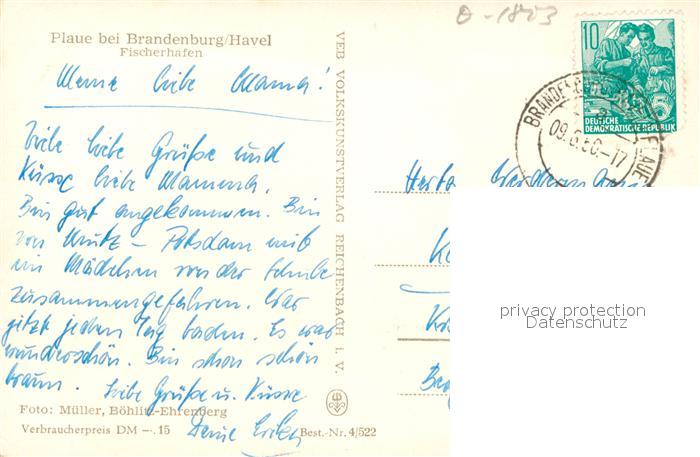 Θ-1803
Plaue bei Brandenburg/Havel
Fischerhafen
Meine liebe Mama!
Viele liebe Grüße und
Küsse liebe Mamma.
Bin gut angekommen. Bin
von - Potsdam mit
ein Mädchen von der Schule
zusammengefahren. War
jetzt jeden Tag baden. Es war
wunderschön. Bin schon schön
braun. Liebe Grüße u. Küsse
Deine
Foto: Müller, Böhlitz-Ehrenberg
Verbraucherpreis DM —.15
Best.-Nr. 4/522
VEB VOLKSKUNSTVERLAG REICHENBACH i. V.
10
5
DEUTSCHE
DEMOKRATISCHE REPUBLIK
09.8.60.-17
PLAUE
Herta
privacy protection
Datenschutz